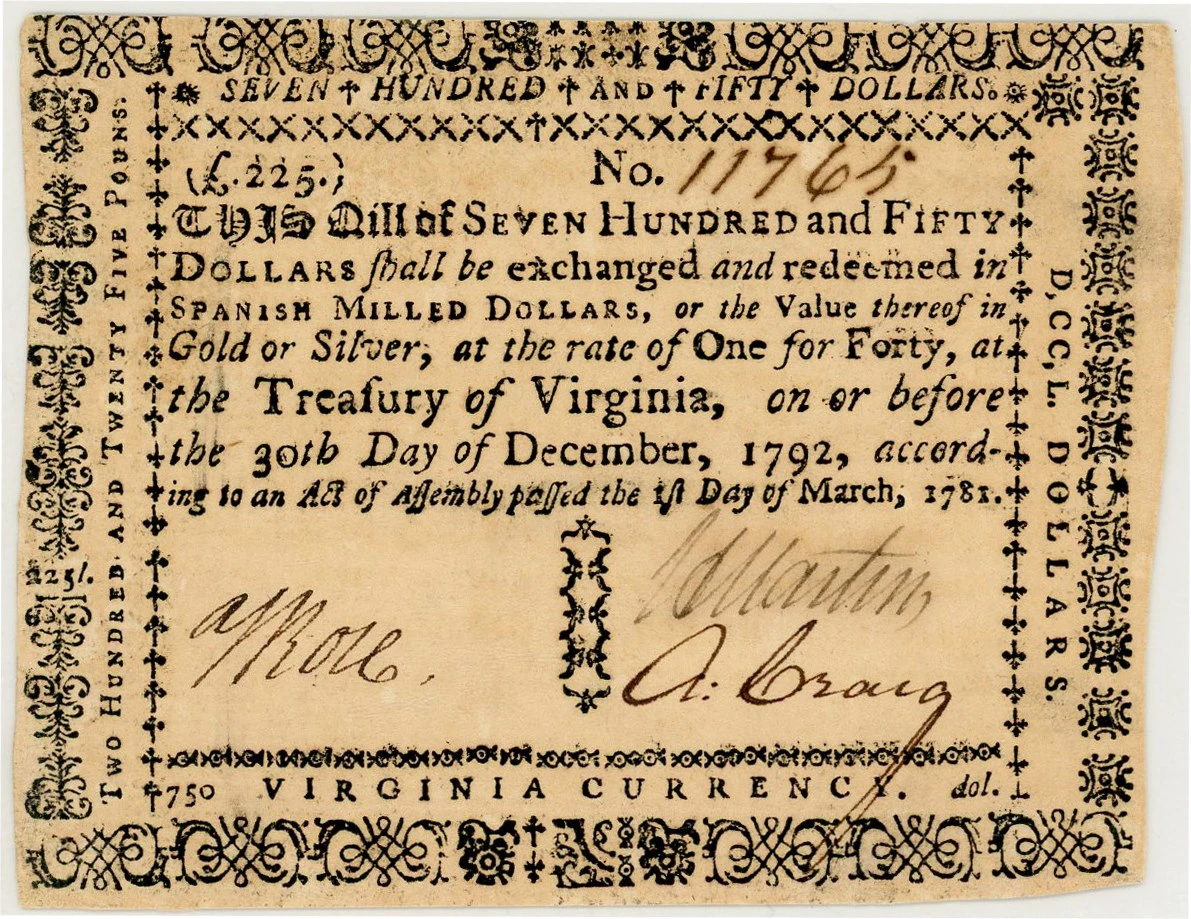 SEVEN HUNDRED AND FIFTY DOLLARS.
(£.225.)
No. 11765
THIS Bill of SEVEN HUNDRED and FIFTY
DOLLARS ſhall be exchanged and redeemed in
SPANISH MILLED DOLLARS, or the Value thereof in
Gold or Silver, at the rate of One for Forty, at
the Treaſury of Virginia, on or before
the 30th Day of December, 1792, accord-
ing to an Act of Aſſembly paſſed the 1ſt Day of March, 1781.
Martin
Rose
A: Craig
750 VIRGINIA CURRENCY. dol.
TWO HUNDRED AND TWENTY FIVE POUNS.
225l.
D,CC,L. DOLLARS.